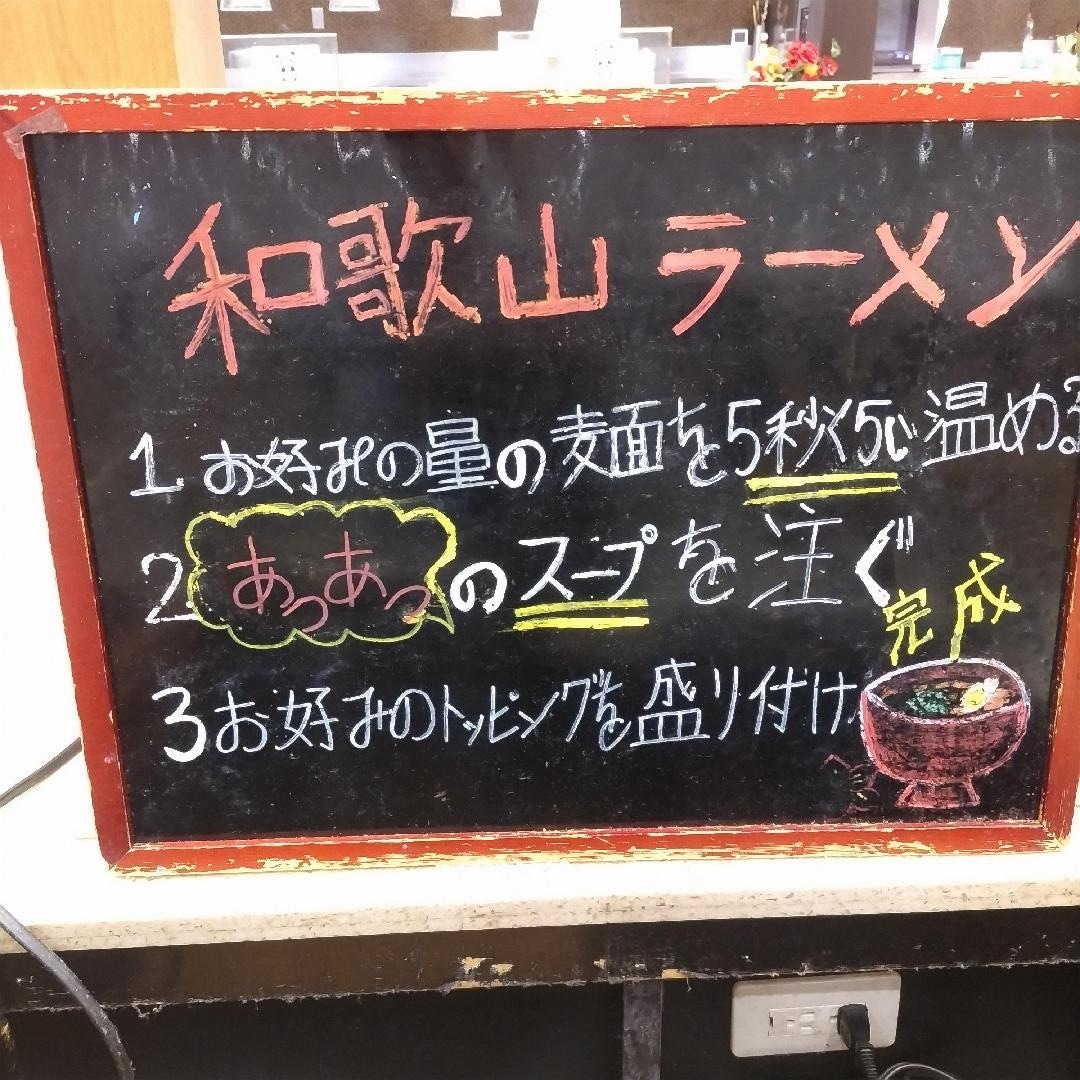 和歌山ラーメン
1 お好みの量の麺を5秒くらい温める
2 あつあつのスープを注ぐ
3 お好みのトッピングを盛り付け
完成